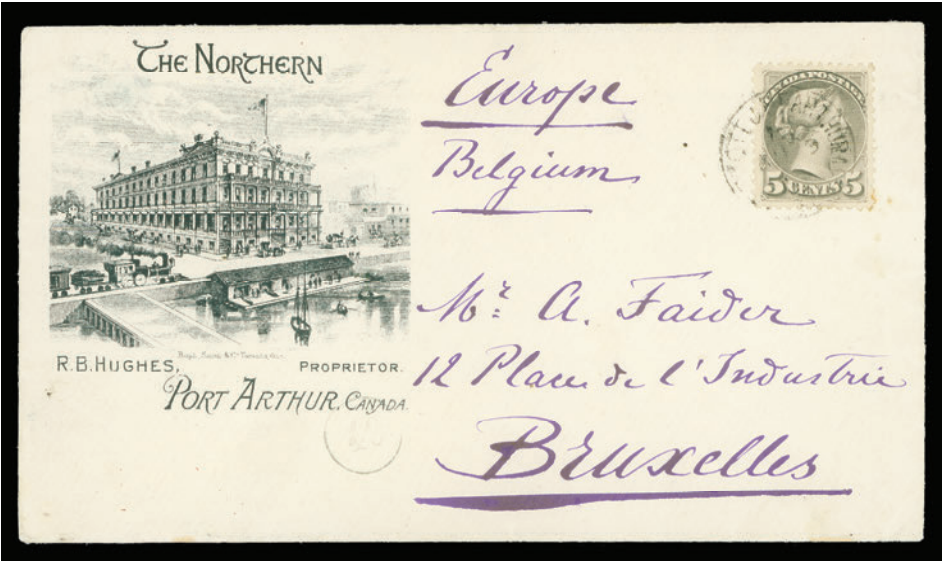 THE NORTHERN
R.B. HUGHES,
PROPRIETOR.
PORT ARTHUR, CANADA.
Europe
Belgium
Mr: A. Faider
12 Place de l'Industrie
Bruxelles
CANADA POSTAGE
5 CENTS 5